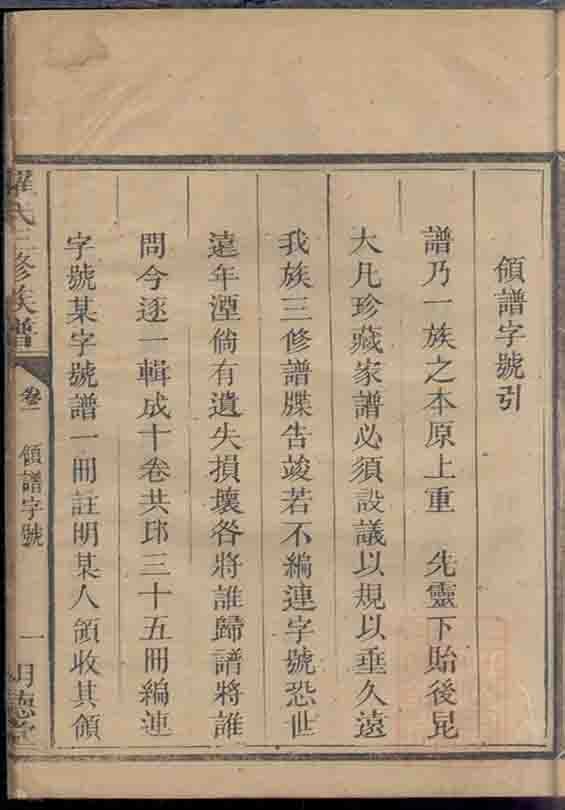 領譜字號引
譜乃一族之本原上重　先靈下貽後昆
大凡珍藏家譜必須設議以規以垂久遠
我族三修譜牒告竣若不編連字號恐世
遠年湮倘有遺失損壞咎將誰歸譜將誰
問今逐一輯成十卷共印三十五冊編連
字號某字號譜一冊註明某人領收其領
羅氏三修族譜
卷一　領譜字號
一
明德堂